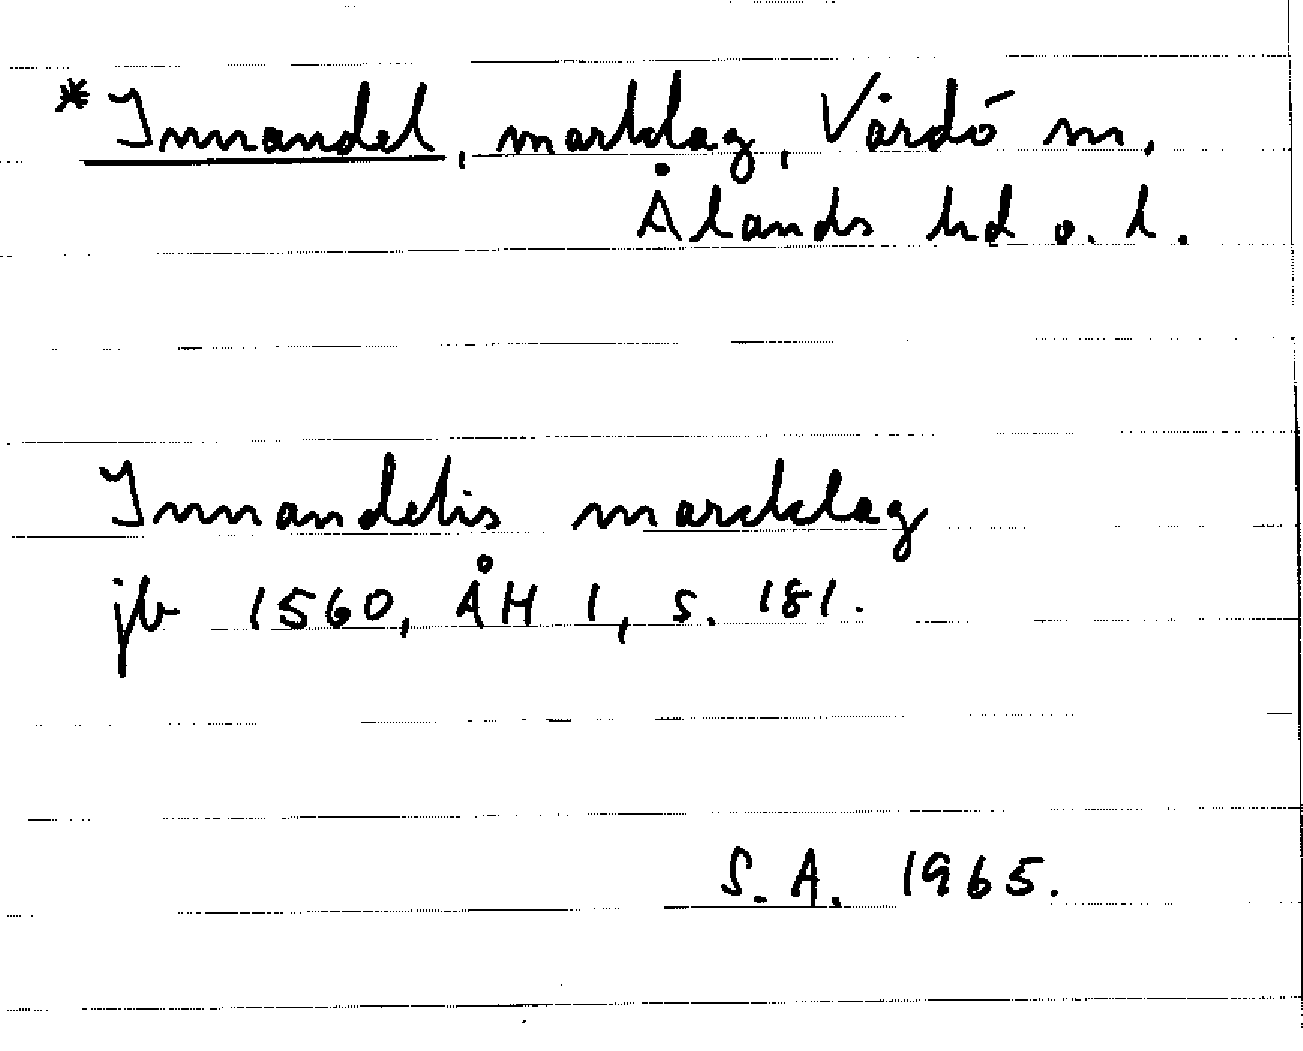 *Innandel, marklag, Vårdö sn,
Ålands hd o. l.
Innandelis marcklag
jb 1560, ÅH 1, s. 181.
S.A. 1965.